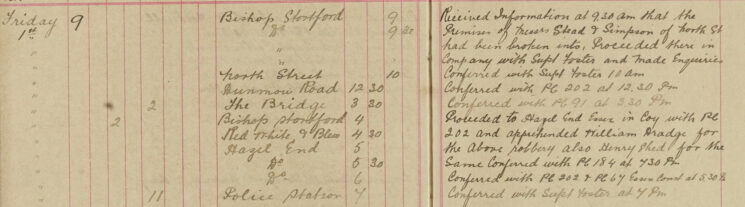 Friday 9 Bishop Stortford 9 Received Information at 9.30 am that the
1st " Do 9 30 Premises of Messrs Stead & Simpson of North St
" " had been broken into, Proceeded there in
" " Company with Supt Foster and Made Enquiries
" North Street 10 Conferred with Supt Foster 10 am
" Dunmow Road 12 30 Conferred with PC 202 at 12.30 Pm
" 2 The Bridge 3 30 Conferred with PC 91 at 3.30 Pm
" 2 Bishop Stortford 4 Proceeded to Hazel End Essex in Coy with PC
" Red White & Blew 4 30 202 and apprehended William Bradge for
" Hazel End 5 the above robbery also Henry Phed for the
" Do 5 30 Same Conferred with PC 184 at 430 Pm
" Do 6 Conferred with PC 202 & PC 67 Essex Const at 5.30 Pm
" 11 Police Station 7 Conferred with Supt Foster at 7 Pm